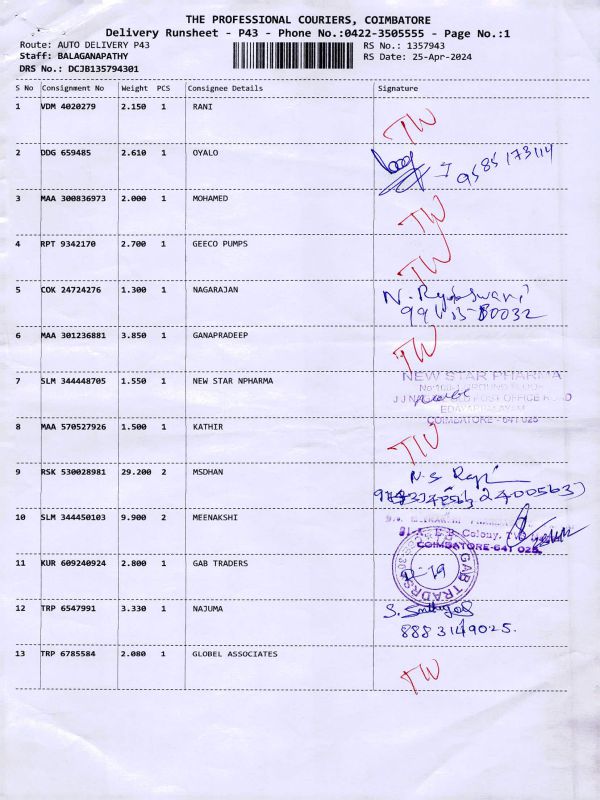 THE PROFESSIONAL COURIERS, COIMBATORE
Delivery Runsheet - P43 - Phone No.:0422-3505555 - Page No.:1
Route: AUTO DELIVERY P43 RS No.: 1357943
Staff: BALAGANAPATHY RS Date: 25-Apr-2024
DRS No.: DCJB135794301
S No Consignment No Weight PCS Consignee Details Signature
1 VDM 4020279 2.150 1 RANI TW
2 DDG 659485 2.610 1 OYALO 9585173114
3 MAA 300836973 2.000 1 MOHAMED TW
4 RPT 9342170 2.700 1 GEECO PUMPS TW
5 COK 24724276 1.300 1 NAGARAJAN N.
6 MAA 301236881 3.850 1 GANAPRADEEP TW
7 SLM 344448705 1.550 1 NEW STAR NPHARMA NEW STAR PHARMA
POST OFFICE ROAD
EDAYARPALAYAM
COIMBATORE - 641 025
8 MAA 570527926 1.500 1 KATHIR TW
9 RSK 530028981 29.200 2 MSDHAN N.S
10 SLM 344450103 9.900 2 MEENAKSHI
Colony,
COIMBATORE-641 025
11 KUR 609240924 2.800 1 GAB TRADERS GAB TRADRS
12 TRP 6547991 3.330 1 NAJUMA S.
8883149025.
13 TRP 6785584 2.080 1 GLOBEL ASSOCIATES TW